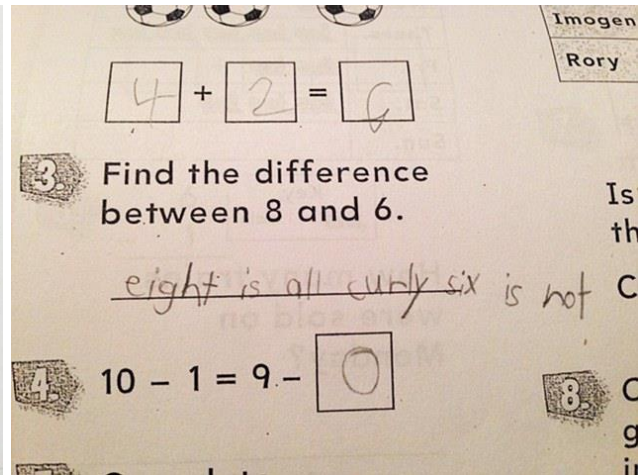 Imogen
Rory
4 + 2 = 6
3. Find the difference
between 8 and 6.
eight is all curly six is not
4. 10 – 1 = 9 – 0
Is
th
C
8.